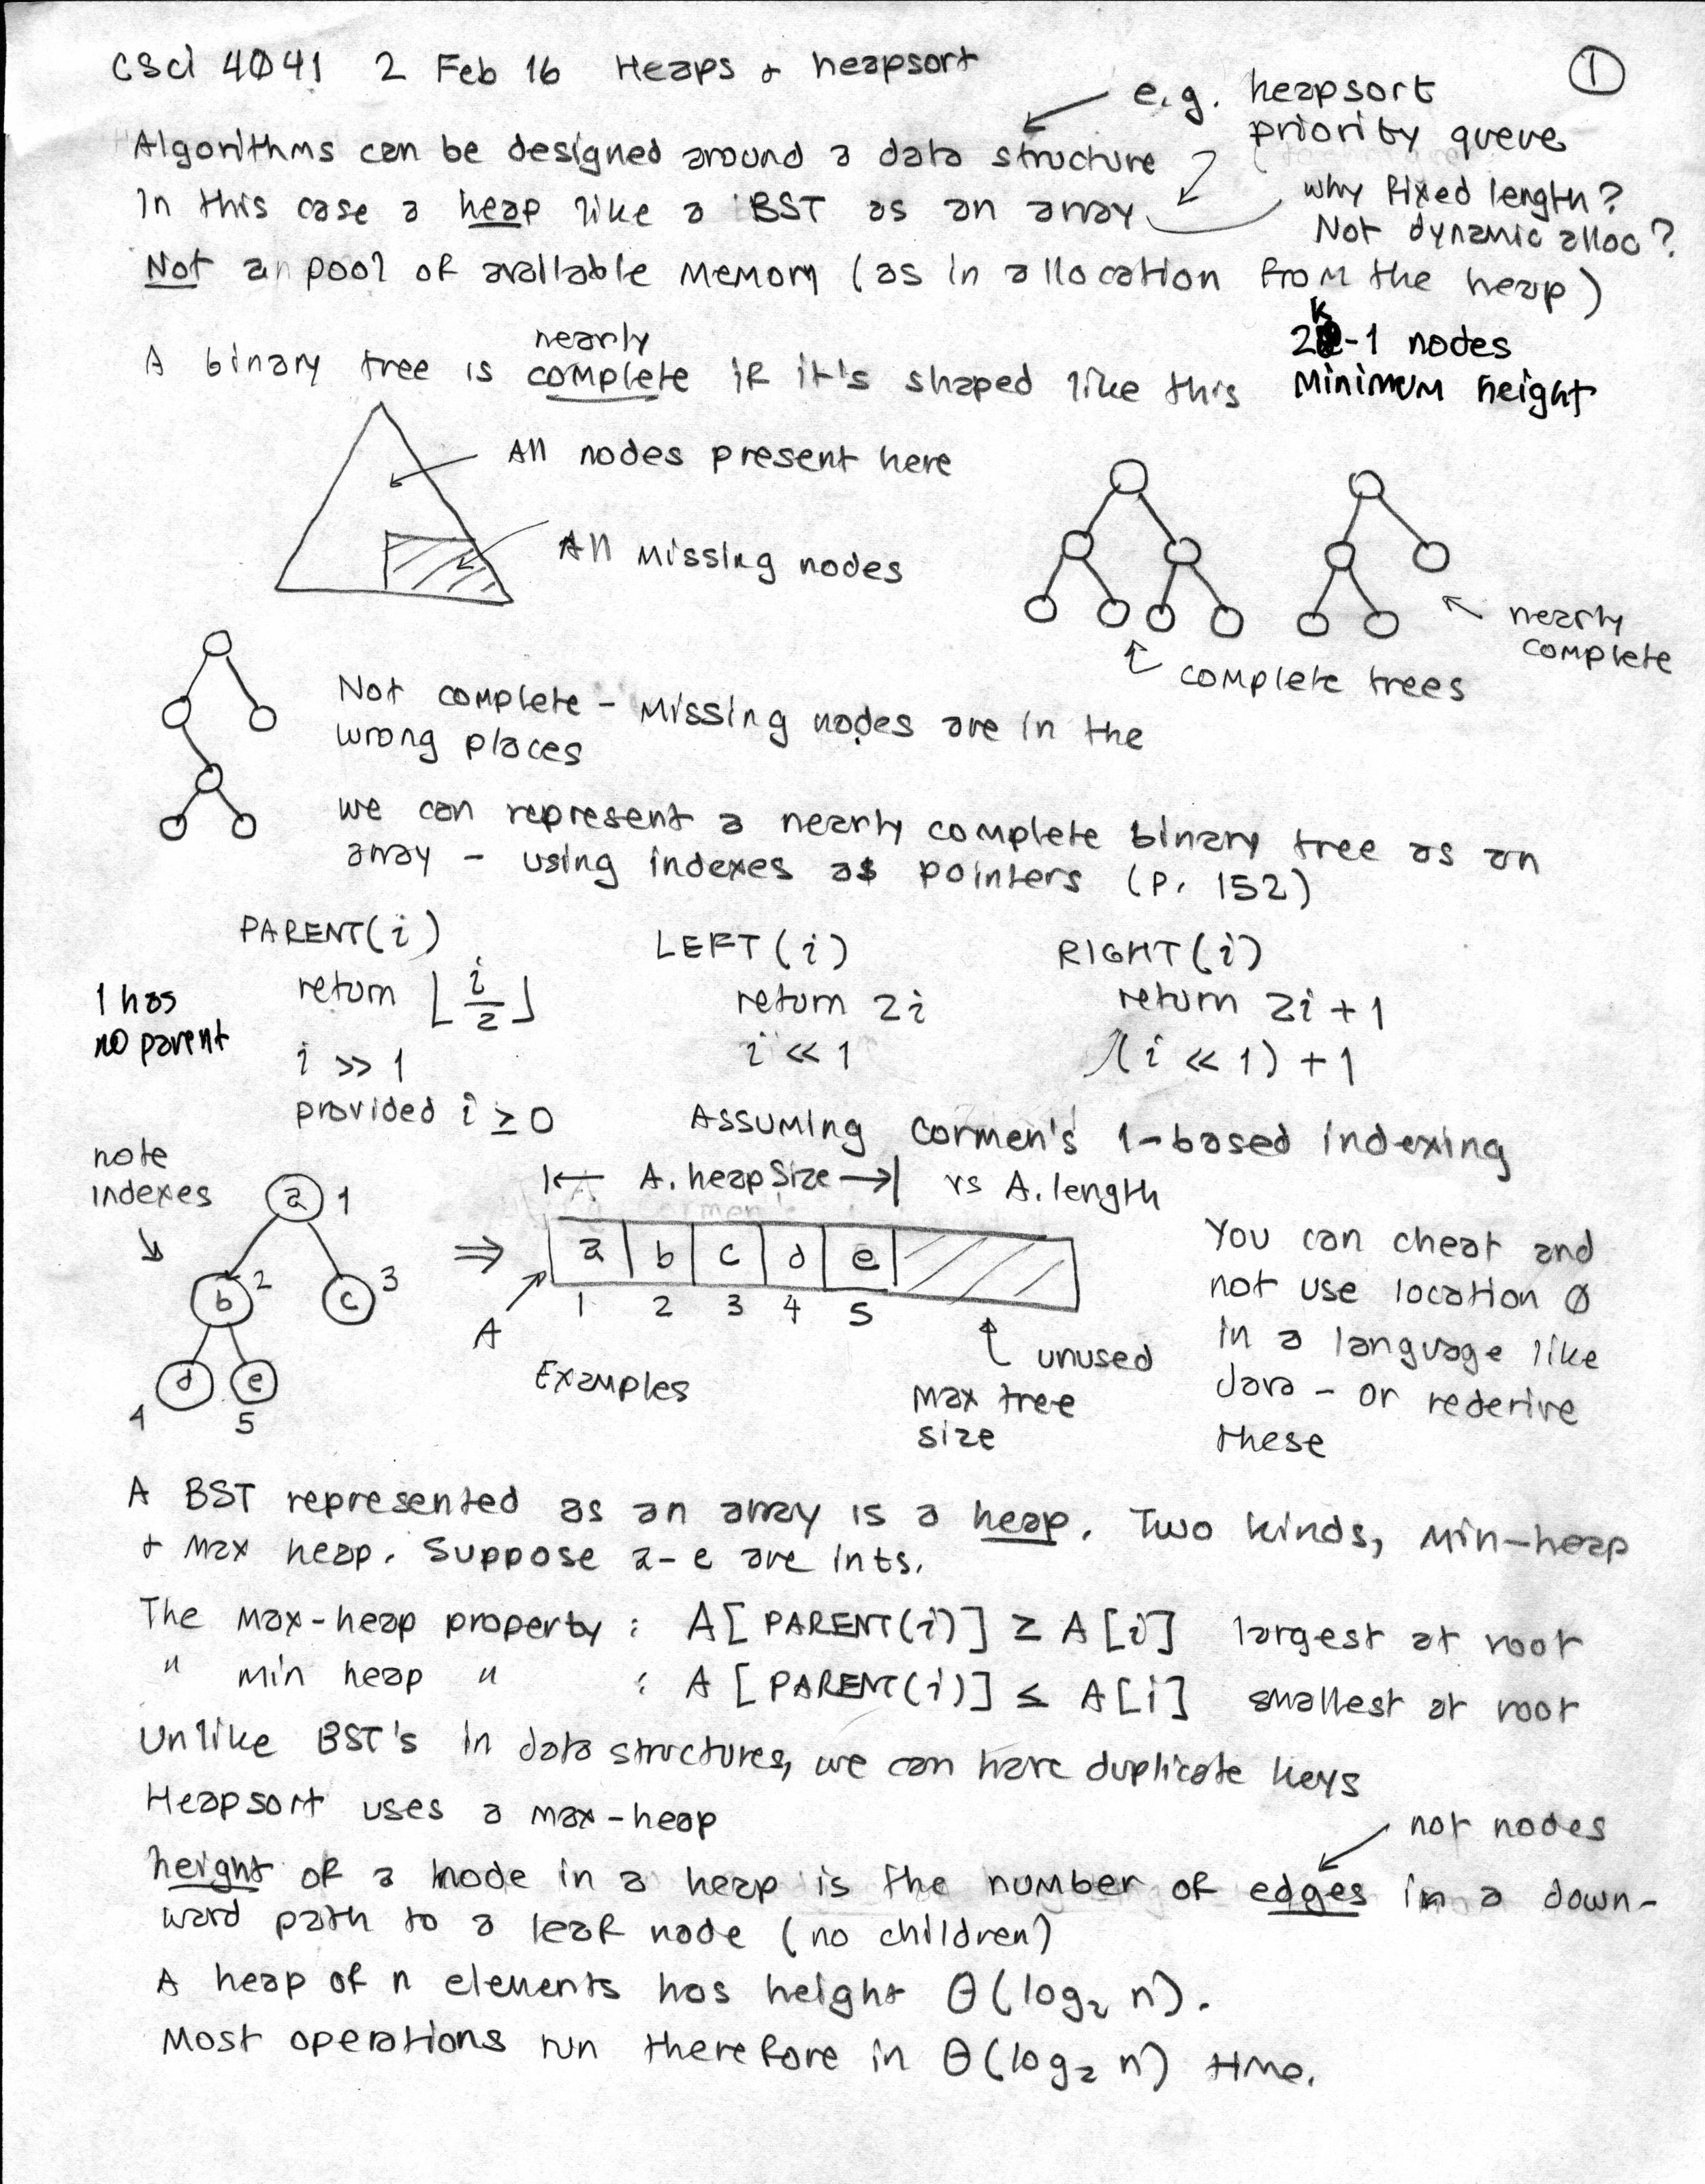 CSci 4041 2 Feb 16 Heaps & heapsort
①
e.g. heapsort
priority queue
Algorithms can be designed around a data structure
why fixed length?
In this case a heap like a BST as an array
Not dynamic alloc?
Not a pool of available memory (as in allocation from the heap)
2^k-1 nodes
minimum height
nearly
A binary tree is complete if it's shaped like this
All nodes present here
All missing nodes
nearly
complete
complete trees
Not complete - missing nodes are in the
wrong places
we can represent a nearly complete binary tree as an
array - using indexes as pointers (p. 152)
PARENT(i) LEFT(i) RIGHT(i)
return ⌊i/2⌋ return 2i return 2i + 1
1 has
no parent
i >> 1 i << 1 (i << 1) + 1
provided i ≥ 0 Assuming Cormen's 1-based indexing
note
indexes
|← A.heapSize →| vs A.length
a 1
b 2 c 3
d e
4 5
⇒ a b c d e
A 1 2 3 4 5
Examples
unused
max tree
size
You can cheat and
not use location Ø
in a language like
Java - or rederive
these
A BST represented as an array is a heap. Two kinds, min-heap
& max heap. Suppose a-e are ints.
The max-heap property : A[PARENT(i)] ≥ A[i] largest at root
" min heap " : A[PARENT(i)] ≤ A[i] smallest at root
Unlike BST's in data structures, we can have duplicate keys
Heapsort uses a max-heap
not nodes
height of a node in a heap is the number of edges in a down-
ward path to a leaf node (no children)
A heap of n elements has height Θ(log₂ n).
Most operations run therefore in Θ(log₂ n) time.